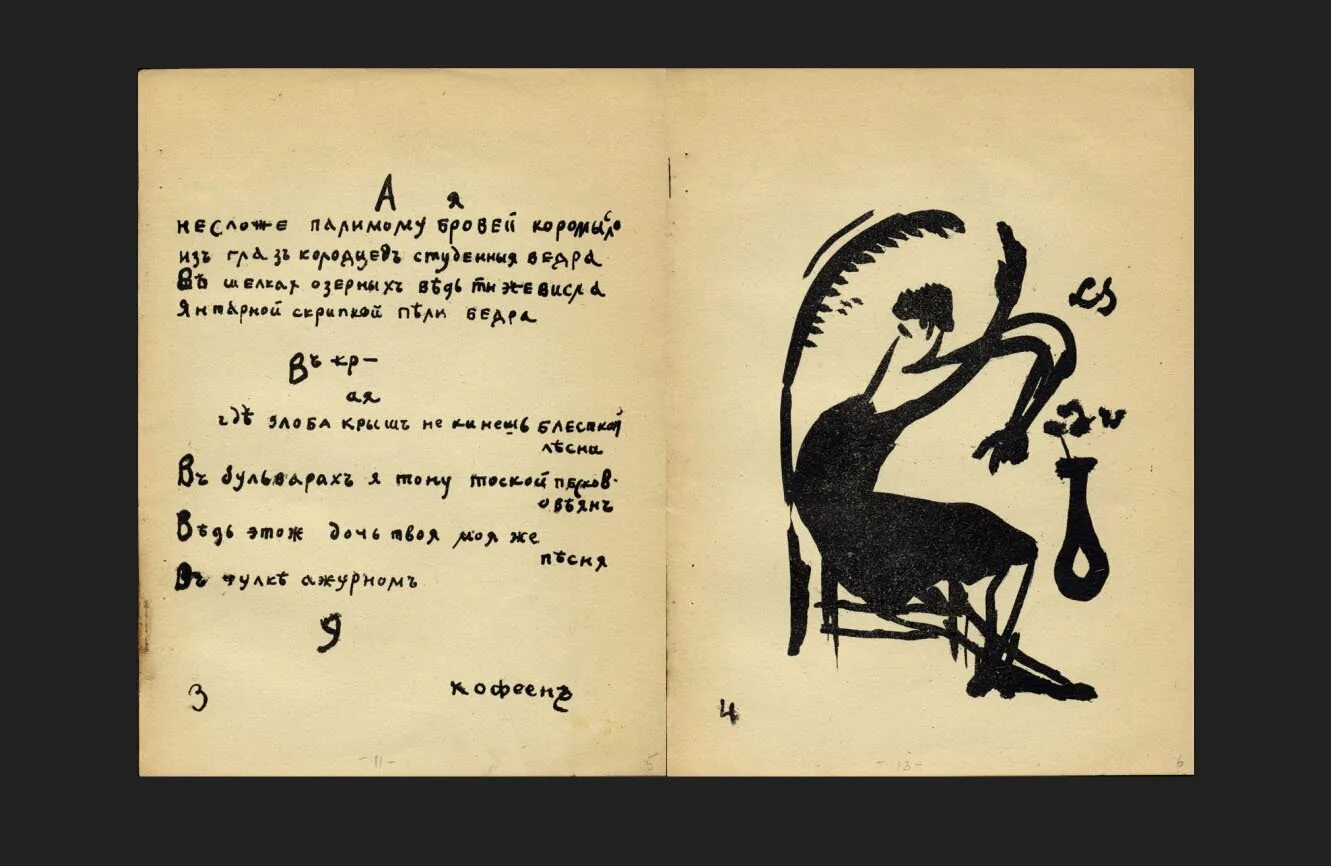 А я
несложе палимому бровей коромысло
изъ глазъ колодцевъ студенныя ведра
Въ шелках озерныхъ вѣдь ты же висла
Янтарной скрипкой пѣли бедра
Въ кр-
ая
гдѣ злоба крышъ не кинешь блесткой
лѣсни
Въ бульварахъ я тону тоской
овѣянъ
Вѣдь этож дочь твоя моя же
пѣсня
Въ чулкѣ ажурномъ
кофеенъ
3
4
-11-
5
-13-
6